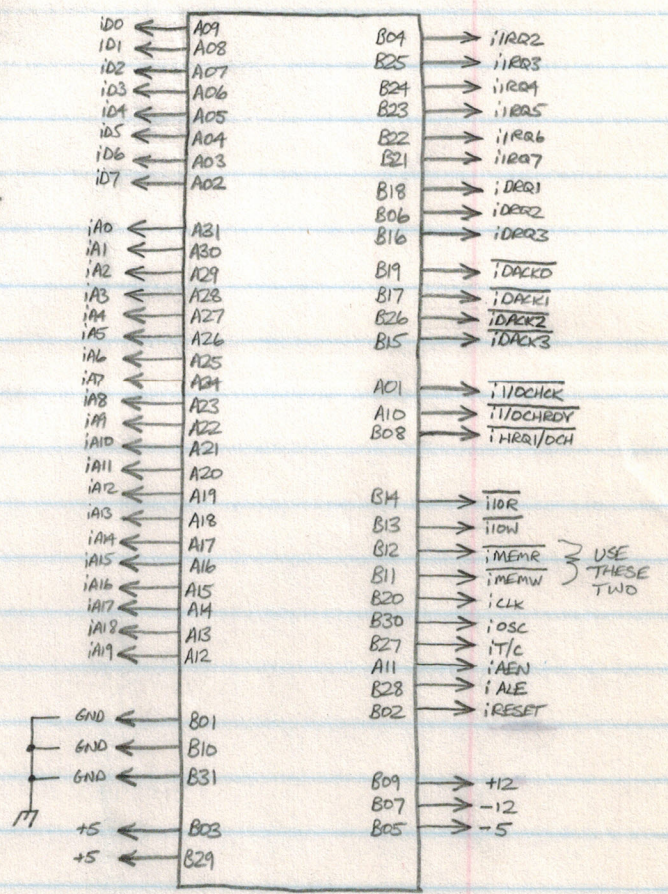 iD0 A09
iD1 A08
iD2 A07
iD3 A06
iD4 A05
iD5 A04
iD6 A03
iD7 A02
iA0 A31
iA1 A30
iA2 A29
iA3 A28
iA4 A27
iA5 A26
iA6 A25
iA7 A24
iA8 A23
iA9 A22
iA10 A21
iA11 A20
iA12 A19
iA13 A18
iA14 A17
iA15 A16
iA16 A15
iA17 A14
iA18 A13
iA19 A12
GND B01
GND B10
GND B31
+5 B03
+5 B29
B04 iIRQ2
B25 iIRQ3
B24 iIRQ4
B23 iIRQ5
B22 iIRQ6
B21 iIRQ7
B18 iDRQ1
B06 iDRQ2
B16 iDRQ3
B19 iDACK0
B17 iDACK1
B26 iDACK2
B15 iDACK3
A01 iI/OCHCK
A10 iI/OCHRDY
B08 iHRQI/OCH
B14 iIOR
B13 iIOW
B12 iMEMR
B11 iMEMW
USE
THESE
TWO
B20 iCLK
B30 iOSC
B27 iT/C
A11 iAEN
B28 iALE
B02 iRESET
B09 +12
B07 -12
B05 -5